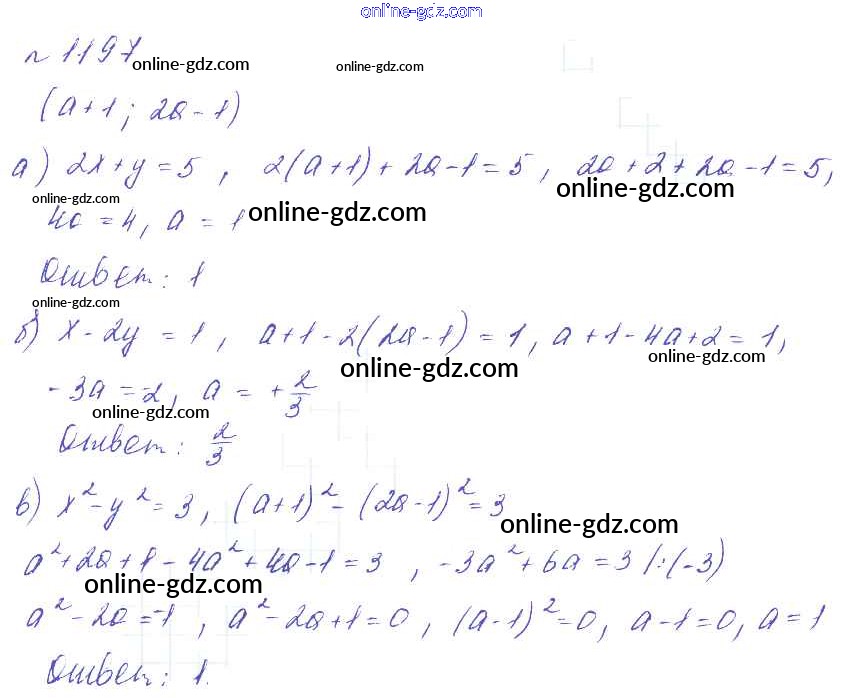 online-gdz.com
n 1197
online-gdz.com online-gdz.com
(a+1; 2a-1)
а) 2x+y=5, 2(a+1)+2a-1=5, 2a+2+2a-1=5,
online-gdz.com online-gdz.com
4a=4, a=1
online-gdz.com
Ответ: 1
online-gdz.com
б) x-2y=1, a+1-2(2a-1)=1, a+1-4a+2=1,
online-gdz.com online-gdz.com
-3a=-2, a=+2/3
online-gdz.com
Ответ: 2/3
в) x²-y²=3, (a+1)²-(2a-1)²=3
online-gdz.com
a²+2a+1-4a²+4a-1=3, -3a²+6a=3 /:(-3)
online-gdz.com
a²-2a=-1, a²-2a+1=0, (a-1)²=0, a-1=0, a=1
Ответ: 1.